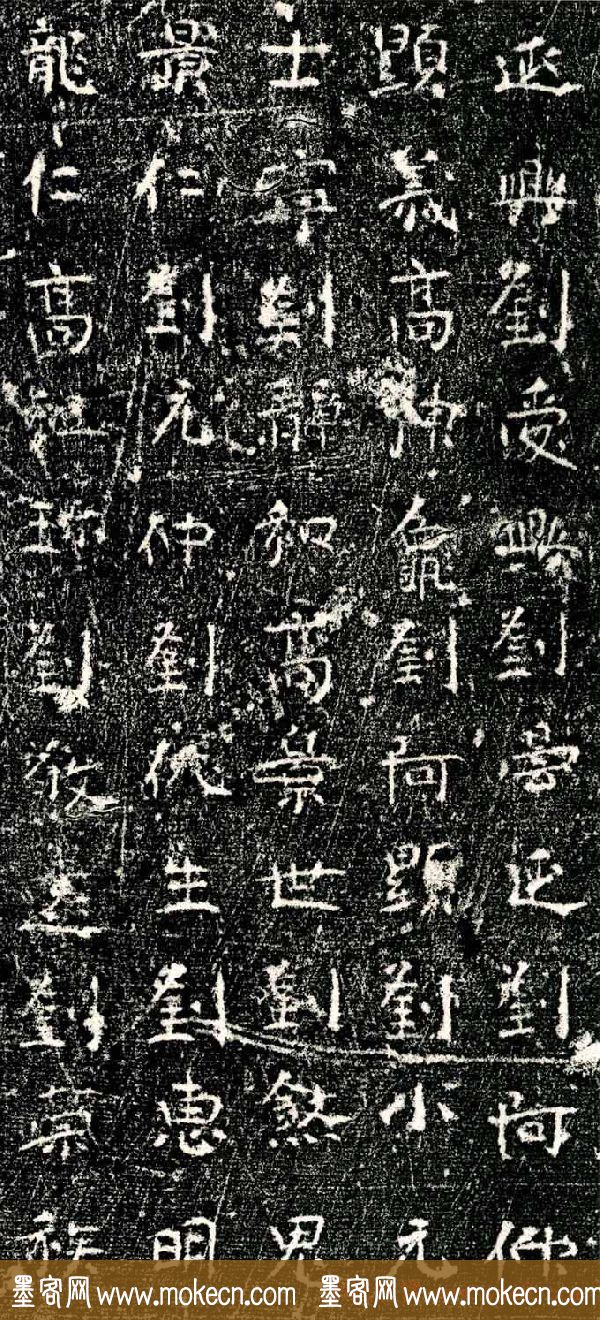 延興劉受興劉曇延劉阿仲
顯義高沖劉阿顯劉小元
士寧劉靜和高景世劉煞鬼
景仁劉元仲劉伏生劉惠明
龍仁高劉敬劉榮族
墨客网 www.mokecn.com 墨客网 www.mokecn.com